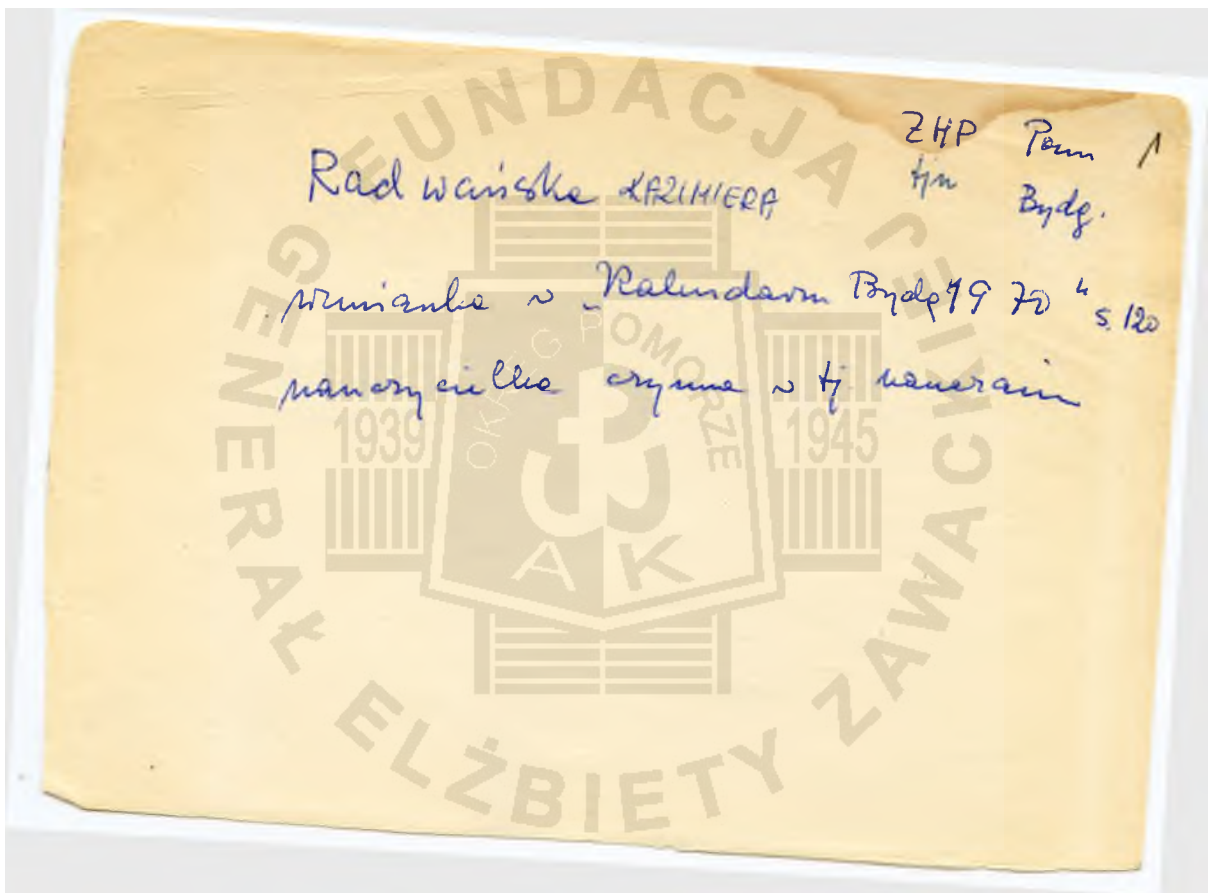 ZHP Pom 1
tjn Bydg.
Radwańska KAZIMIERA
wzmianka w „Kalendarzu Bydg 1970" s. 120
nauczycielka czynna w tj nauczaniu
FUNDACJA GENERAŁ ELŻBIETY ZAWACKIEJ
OKRĘG POMORZE
1939
1945
AK